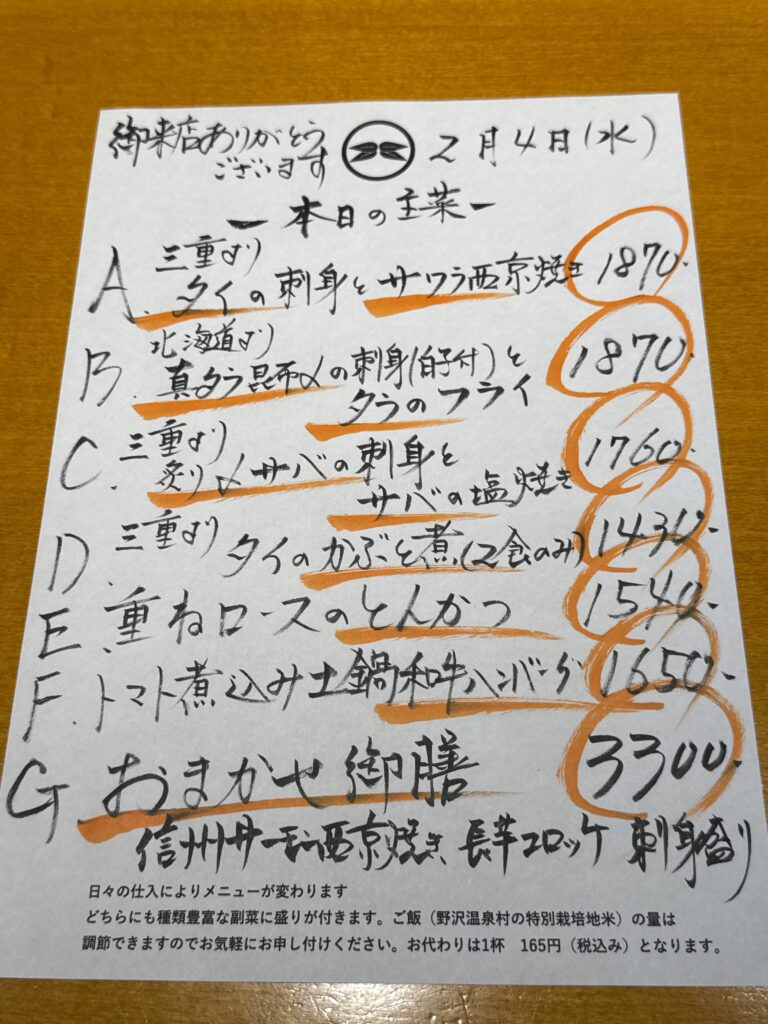 御来店ありがとう
ございます
2月4日(水)
ー本日の主菜ー
三重より
A. タイの刺身とサワラ西京焼き 1870.
北海道より
B. 真タラ昆布〆の刺身(白子付)と
タラのフライ 1870.
三重より
C. 炙り〆サバの刺身と
サバの塩焼き 1760.
D. 三重より タイのかぶと煮(2食のみ) 1430-
E. 重ねロースのとんかつ 1540-
F. トマト煮込み土鍋和牛ハンバーグ 1650-
G おまかせ御膳 3300.
信州サーモン西京焼き、長芋コロッケ 刺身盛り
日々の仕入によりメニューが変わります
どちらにも種類豊富な副菜に盛りが付きます。ご飯（野沢温泉村の特別栽培地米）の量は
調節できますのでお気軽にお申し付けください。お代わりは1杯　165円（税込み）となります。